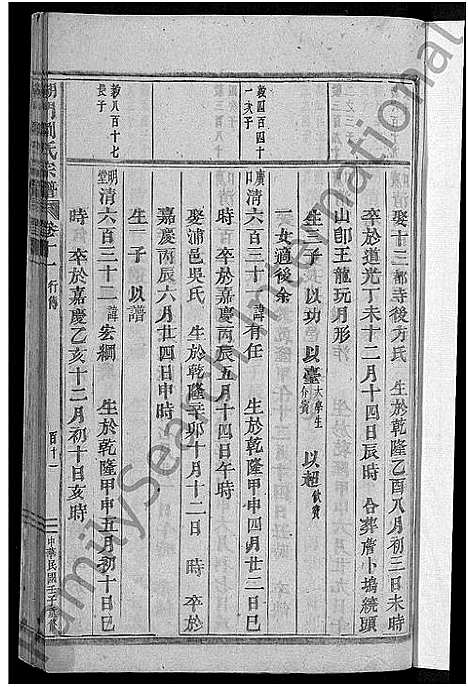 娶十三都寺後方氏 生於乾隆乙酉八月初三日未時
卒於道光丁未十二月十四日辰時 合葬詹卜塢繞頭
山卽王龍玩月形
生三子 以功 以臺 大學生 以超 飮賓
一女適後余
敎四百四十一次子
清六百三十一 諱有任 生於乾隆甲申四月廿二日巳
時 卒於嘉慶丙辰五月十四日午時
娶浦邑吳氏 生於乾隆辛卯十月十二日 時 卒於
嘉慶丙辰六月廿四日申時
生一子 以譜
敎八百十七長子
明堂 清六百三十二 諱宏綱 生於乾隆甲申五月初十日巳
時 卒於嘉慶乙亥十二月初十日亥時
氏宗譜 卷十一 行傳 百十一
中華民國壬子
FamilySearch International